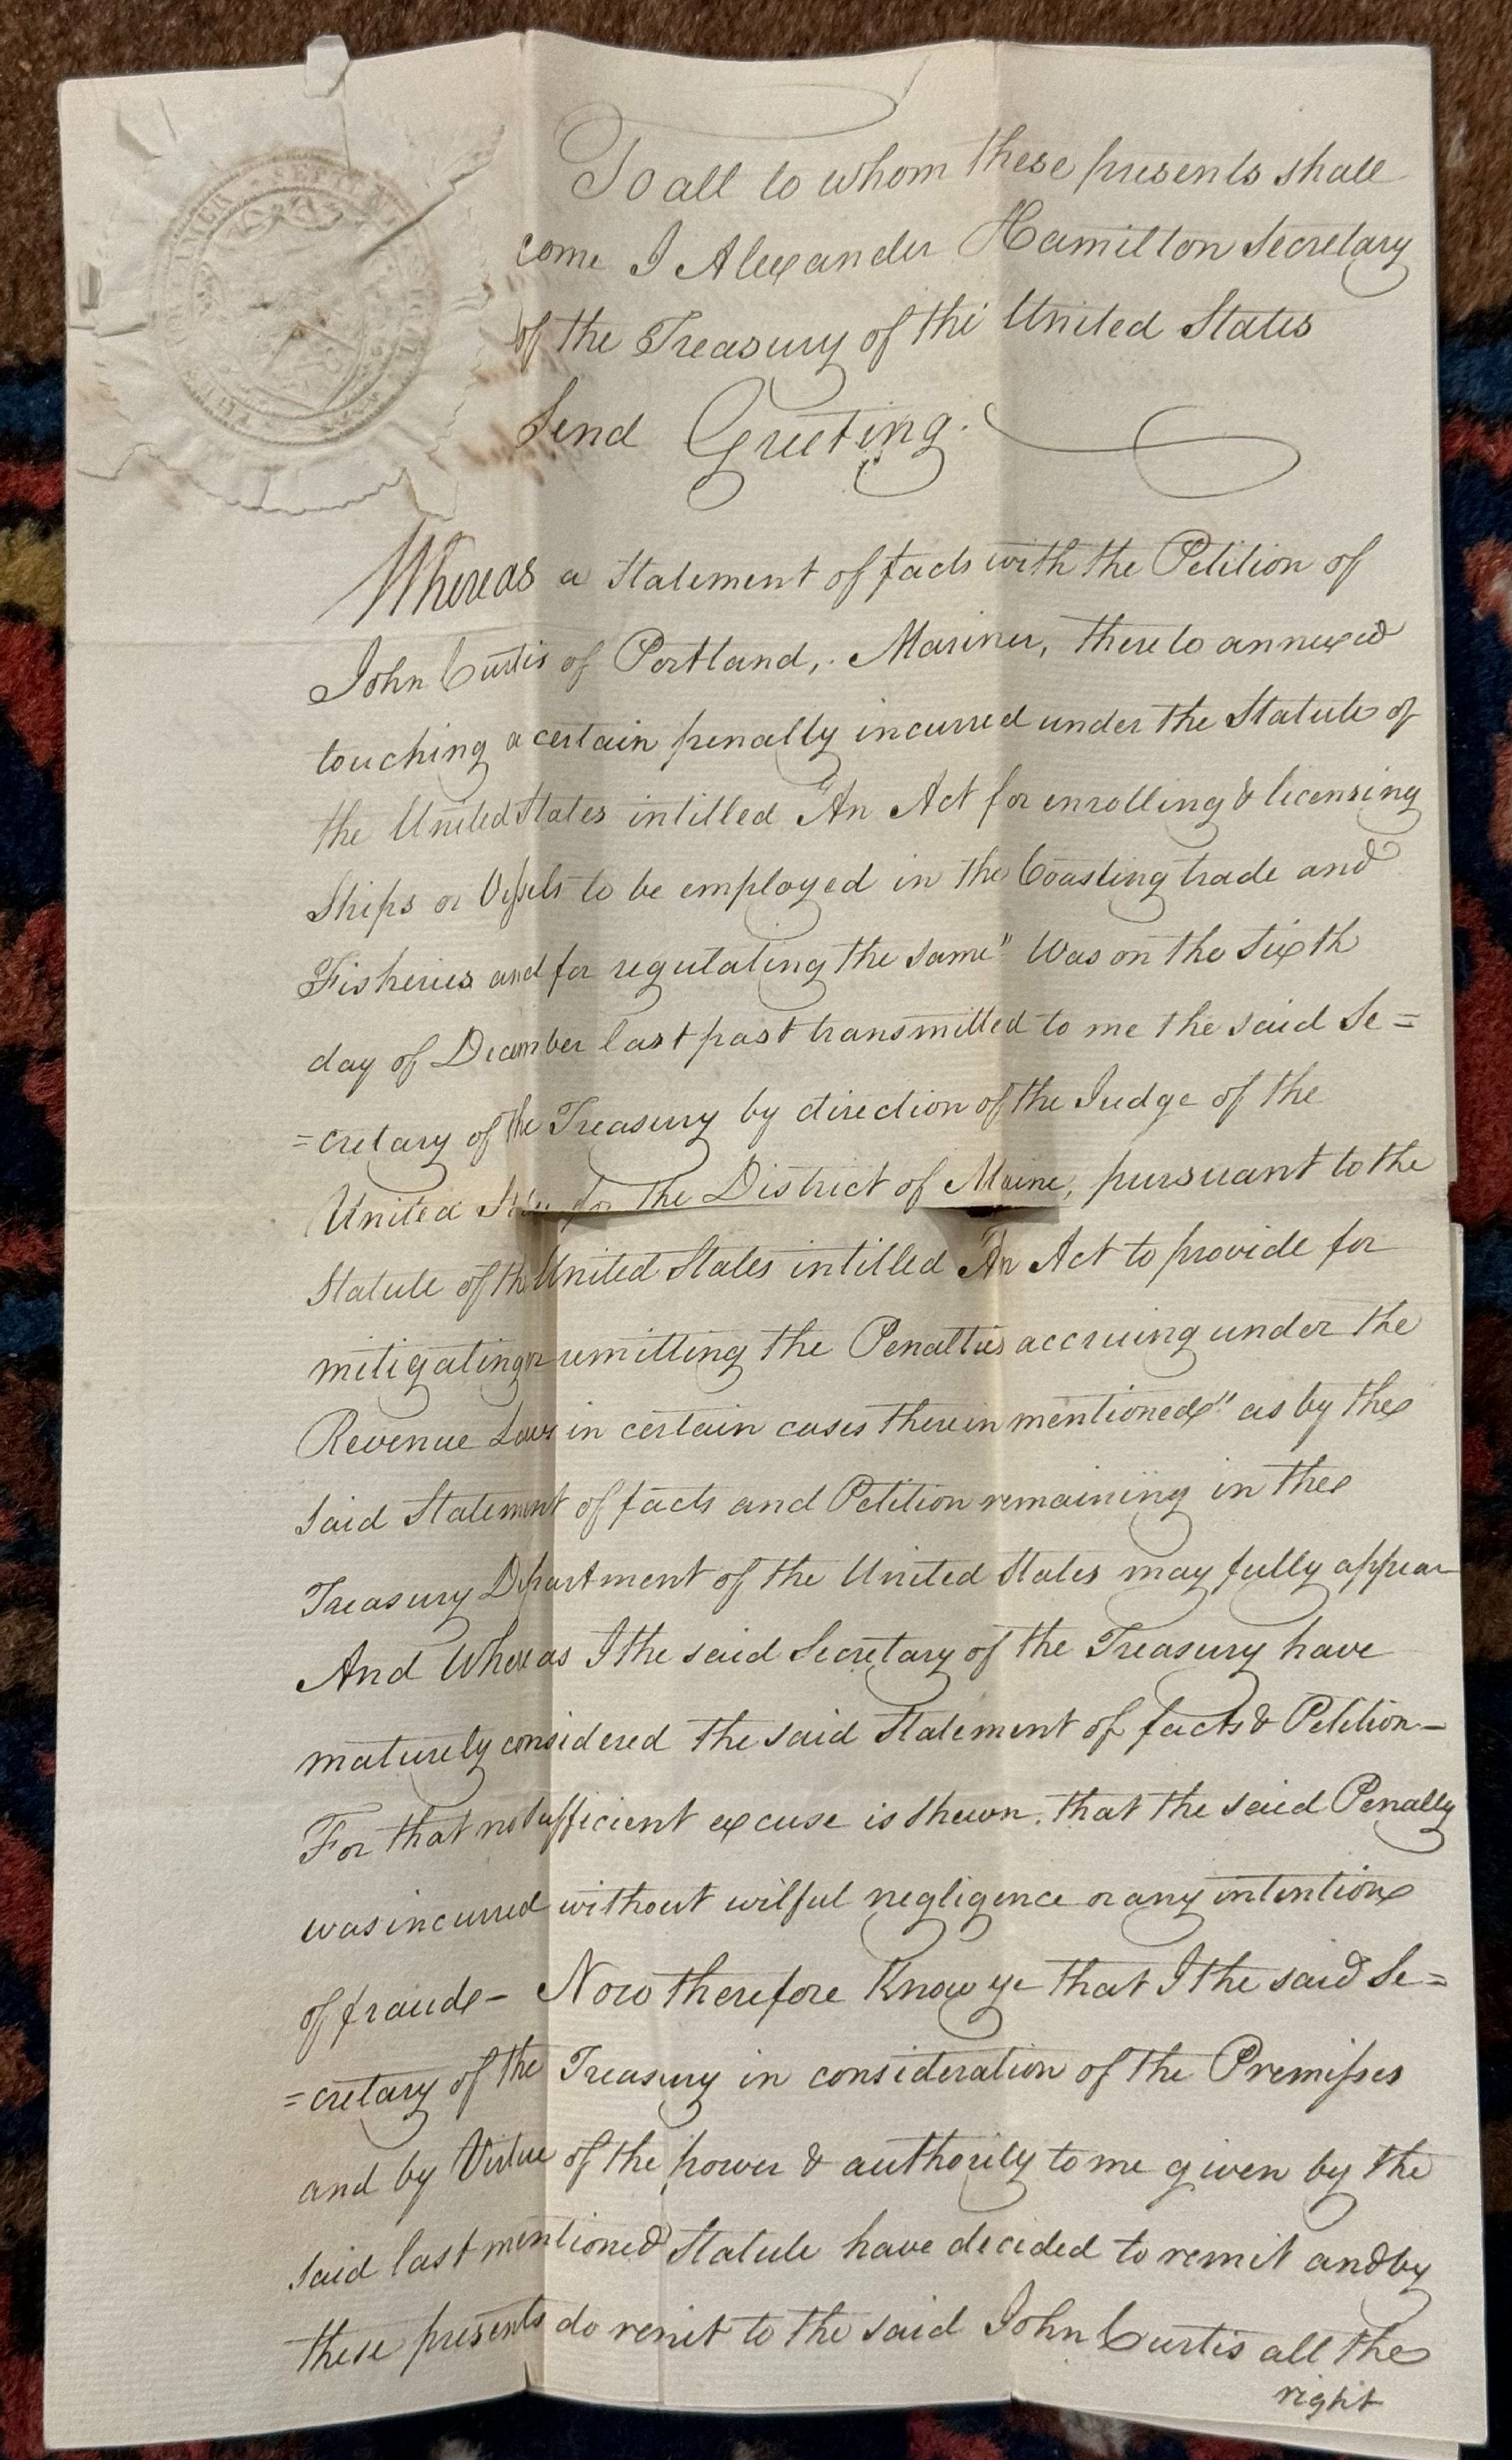 To all to whom these presents shall
come I Alexander Hamilton Secretary
of the Treasury of the United States
Send Greeting.
Whereas a Statement of facts with the Petition of
John Curtis of Portland, Mariner, thereto annexed
touching a certain penalty incurred under the Statute of
the United States intitled "An Act for enrolling & licensing
Ships or Vessels to be employed in the Coasting trade and
Fisheries and for regulating the same" Was on the Sixth
day of December last past transmitted to me the said Se=
=cretary of the Treasury by direction of the Judge of the
United States for the District of Maine, pursuant to the
Statute of the United States intitled "An Act to provide for
mitigating or remitting the Penalties accruing under the
Revenue Laws in certain cases therein mentioned" as by the
said Statement of facts and Petition remaining in the
Treasury Department of the United States may fully appear
And Whereas I the said Secretary of the Treasury have
maturely considered the said Statement of facts & Petition—
For that not sufficient excuse is shewn. that the said Penalty
was incurred without wilful negligence or any intention
of fraud— Now therefore Know ye that I the said Se=
=cretary of the Treasury in consideration of the Premisses
and by Virtue of the power & authority to me given by the
said last mentioned Statute have decided to remit and by
these presents do remit to the said John Curtis all the
right